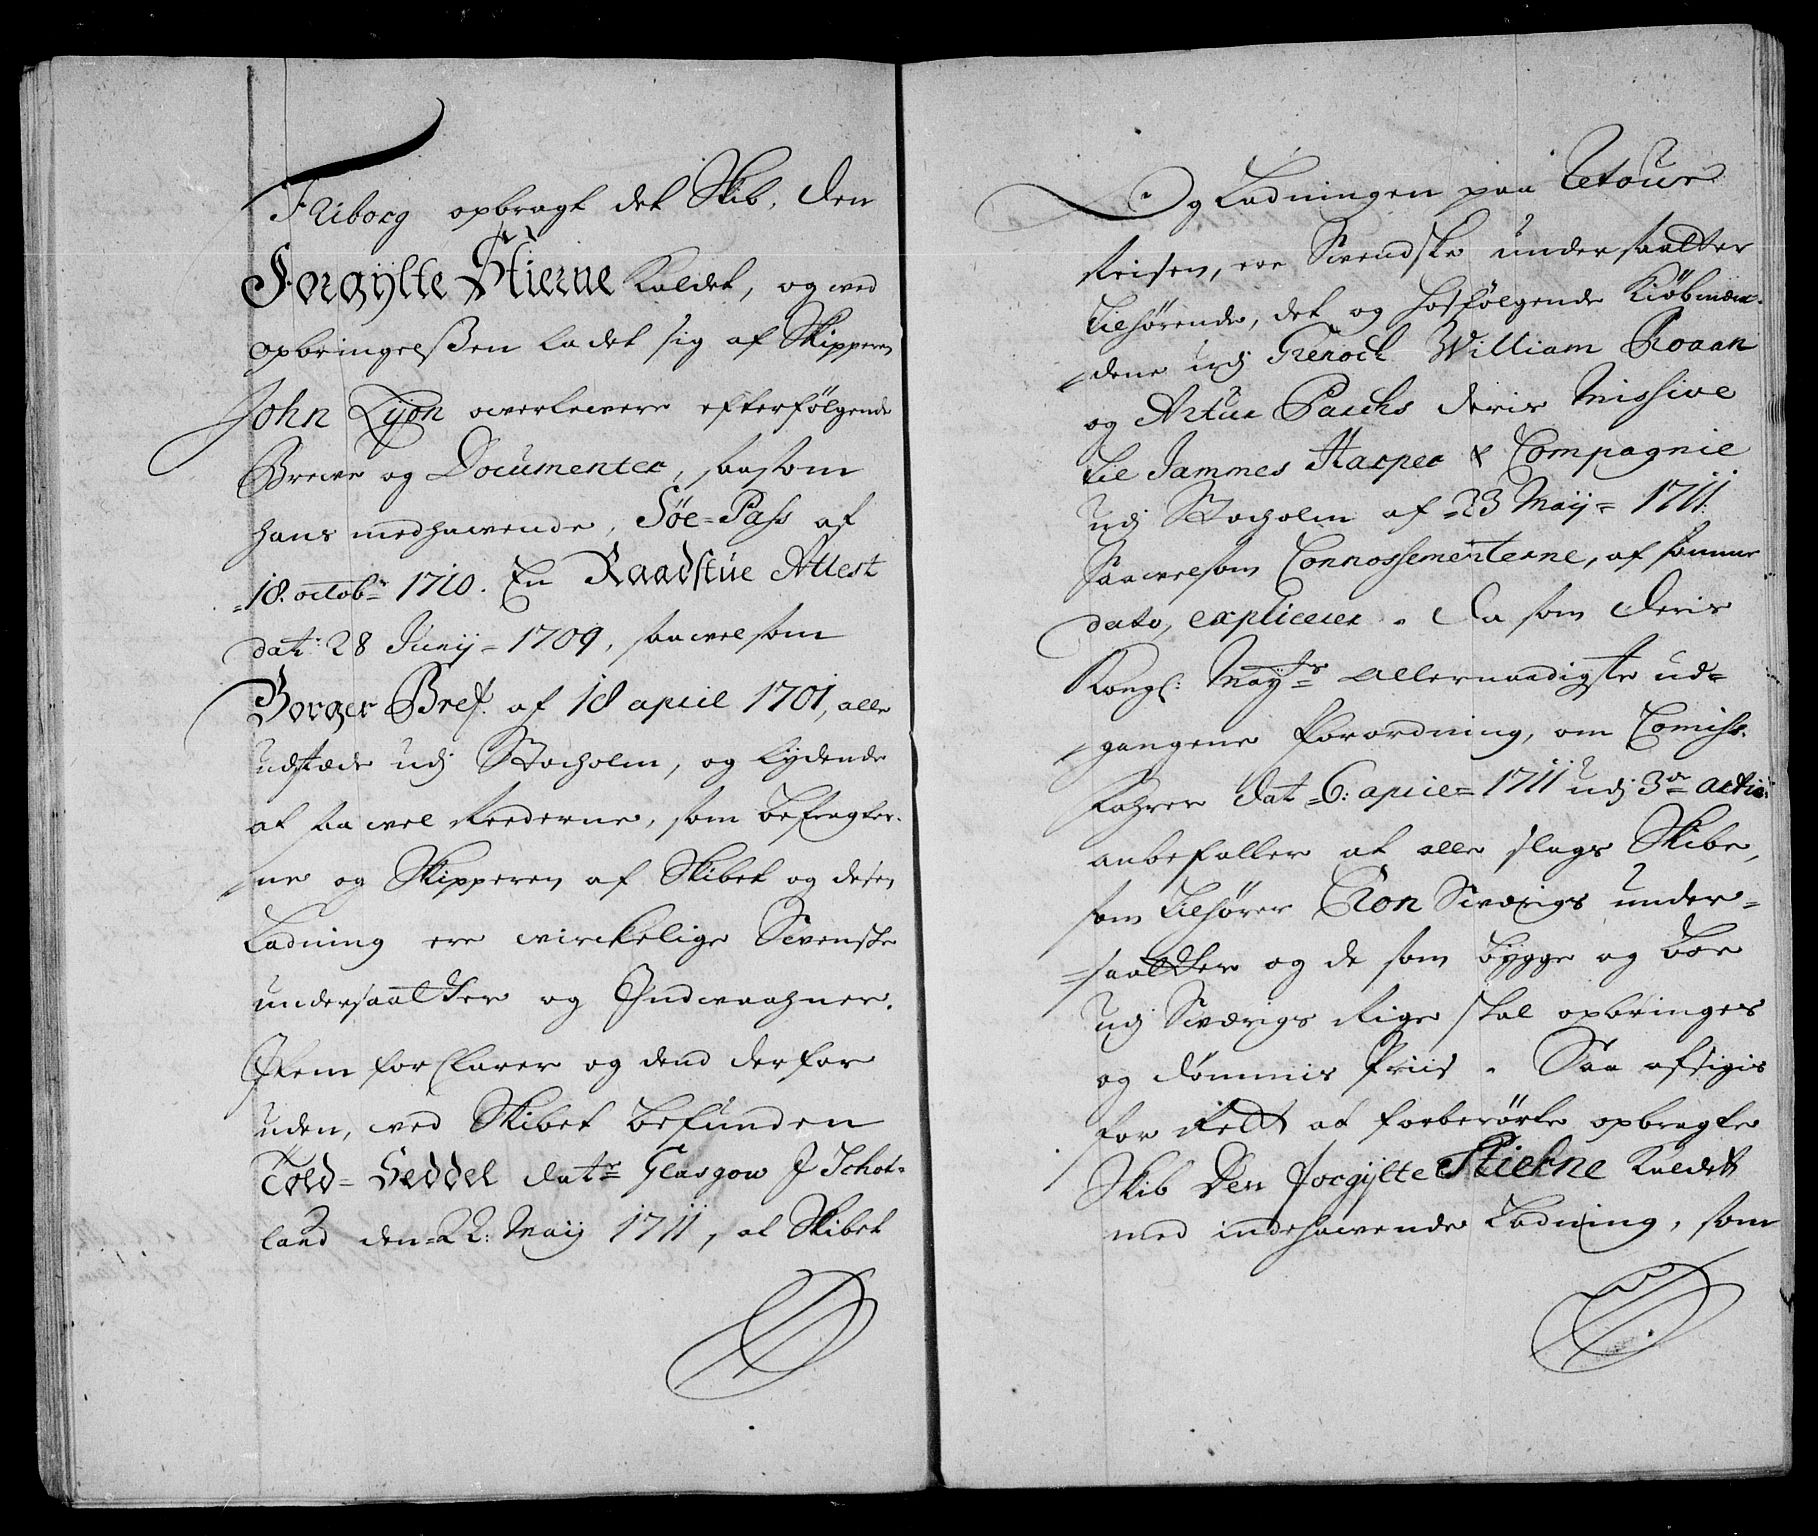 Friborg opbragt det Skib, den
Forgylte Stierne kaldet, og ved
opbringelßen ladet sig af Skipperen
John Lyon overlevere efterfølgende
Breve og Documenter, saasom
hans medhavende, Søe=Pass af
18. octobr 1710. En Raadstue Attest
dat: 28 Junij 1709, saavelsom
Borger Bref. af 18 april 1701, alle
udstæde udj Stocholm, og lydende
at saavel Rederne, som befragter-
ne og Skipperen af Skibet og desen
Ladning ere virckelige Svenske
undersaatter og Indvaahner.
Item forclarer og dend derfor
uden, ved Skibet befunden
Told=Seddel datr Glasgow J Schot=
land den=22: Maij 1711, at Skibet
Og Ladningen paa Retour
Reisen, ere Svendske undersaatter
tilhørende, det og hosfølgende Kiøbmæn-
dene udj Grenock William Roaan
og Artur Parchs deris Missive
til Jammes Harper & Compagnie
udj Stocholm af =23 Maij= 1711.
Saavelsom Connossementerne, af samme
dato, explicerer. Da som deris
Kongl: Mayts allernaadigste ud=
gangene Forordning, om Comiss.
Fahrer dat =6: april= 1711 udj 3de artic:
anbefaller at alle slags Skibe,
som tilhører Cron Sværigs under=
=saatter og de som bygge og boe
udj Sværigs Rige skal opbringes
og dømmis Priis. Saa afsigis
for Rett at forberørte opbragte
Skib Den Forgylte Stierne kaldet
med indehavende Ladning, som